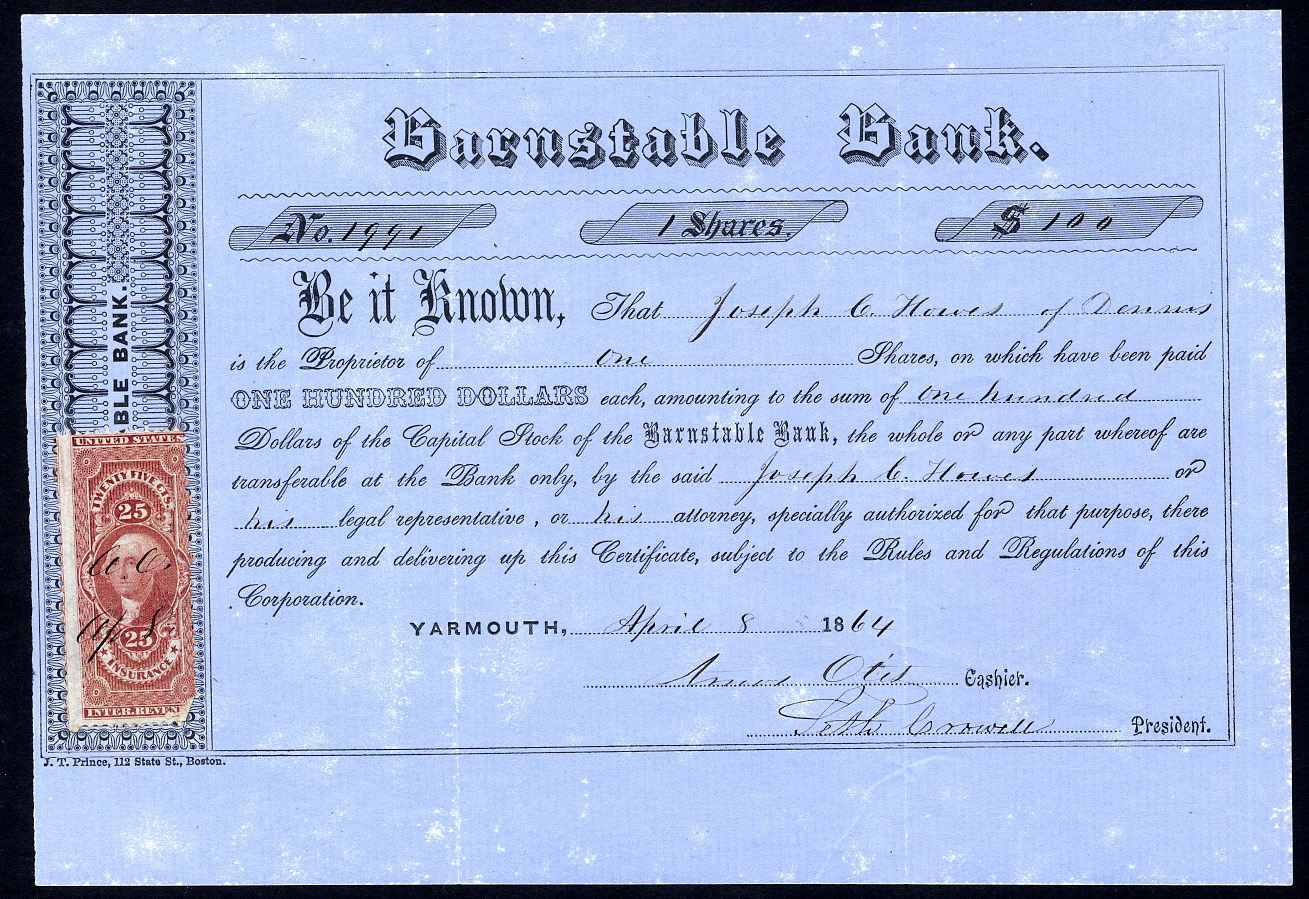 Barnstable Bank.
No. 1991 1 Shares. $ 100
Be it Known, That Joseph C. Howes of Dennis
is the Proprietor of one Shares, on which have been paid
ONE HUNDRED DOLLARS each, amounting to the sum of one hundred
Dollars of the Capital Stock of the Barnstable Bank, the whole or any part whereof are
transferable at the Bank only, by the said Joseph C. Howes or
his legal representative, or his attorney, specially authorized for that purpose, there
producing and delivering up this Certificate, subject to the Rules and Regulations of this
Corporation.
YARMOUTH, April 8 1864
Amos Otis Cashier.
Seth Crowell President.
BLE BANK.
UNITED STATES
TWENTY FIVE CTS.
25
Ap 8
25
INSURANCE
INTER. REVEN
J. T. Prince, 112 State St., Boston.